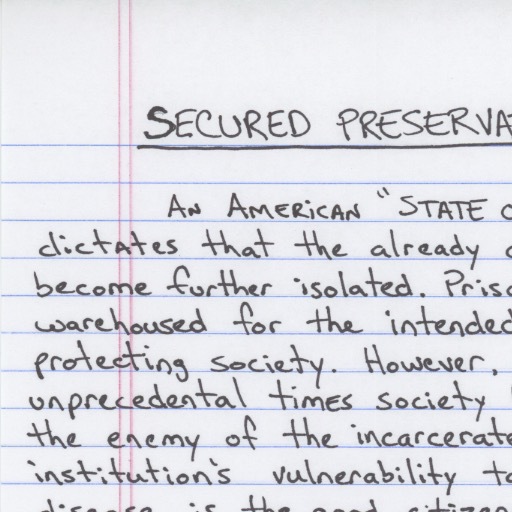 SECURED PRESERVA
AN AMERICAN "STATE
dictates that the already
become further isolated. Priso
warehoused for the intended
protecting society. However,
unprecedental times society
the enemy of the incarcerate
institution's vulnerability to
disease is the good citizen